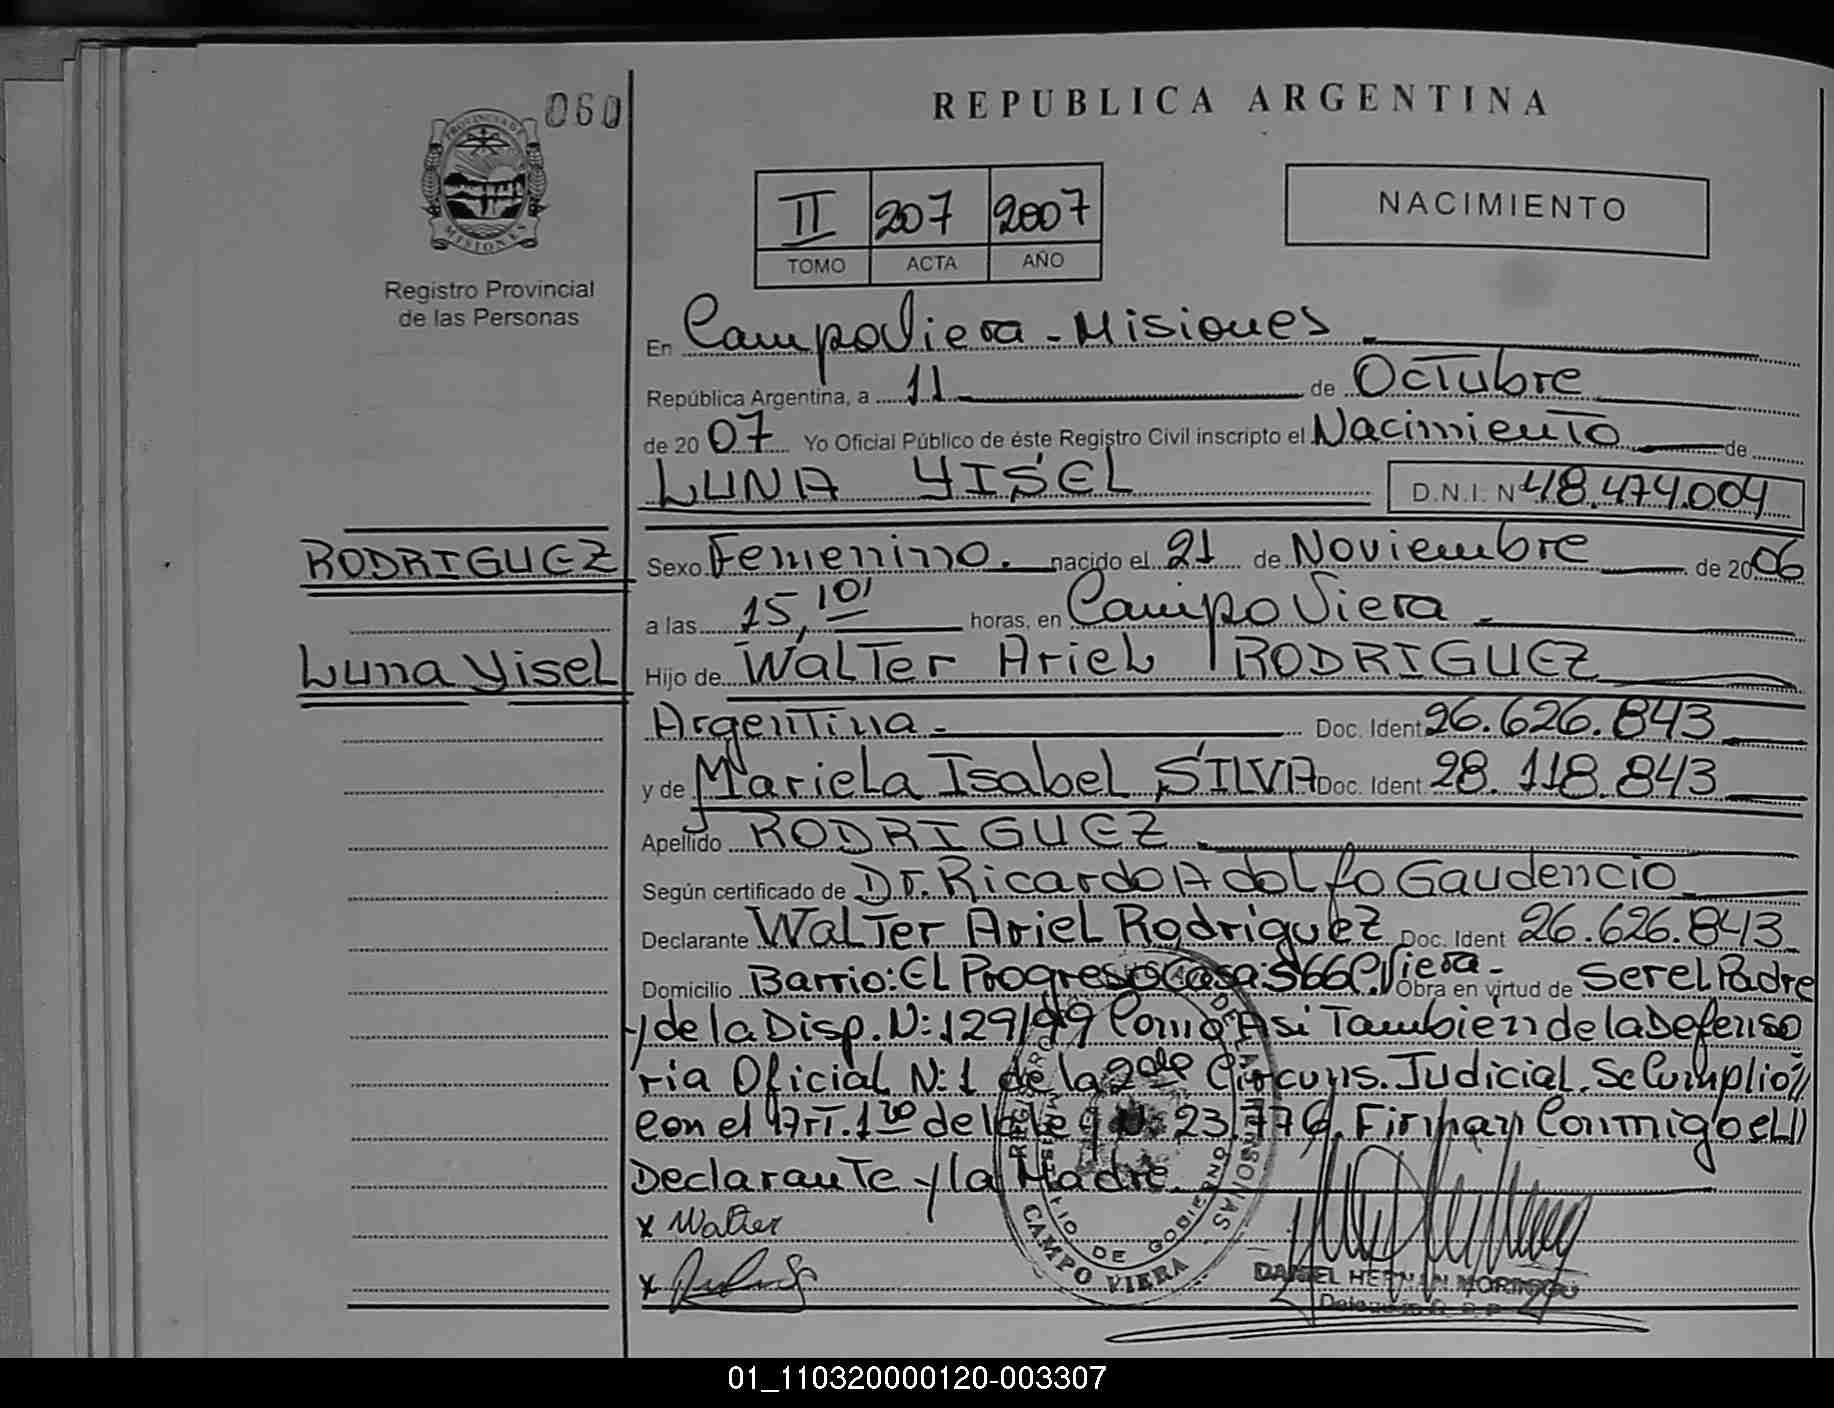 060
PROVINCIA DE
MISIONES
Registro Provincial
de las Personas
RODRIGUEZ
Luna Yisel
REPUBLICA ARGENTINA
II 207 2007
TOMO ACTA AÑO
NACIMIENTO
En CampoViera - Misiones
República Argentina, a 11 de Octubre
de 2007 Yo Oficial Público de éste Registro Civil inscripto el Nacimiento de
LUNA YISEL D.N.I. Nº 48.474.004
Sexo Femenino. nacido el 21 de Noviembre de 2006
a las 15,10' horas, en Campo Viera -
Hijo de Walter Ariel RODRIGUEZ
Argentina - Doc. Ident 26.626.843
y de Mariela Isabel SILVA Doc. Ident 28.118.843
Apellido RODRIGUEZ
Según certificado de Dr. Ricardo Adolfo Gaudencio
Declarante Walter Ariel Rodriguez Doc. Ident 26.626.843
Domicilio Barrio: El Progreso Casa: 566 C. Viera - Obra en virtud de Ser el Padre
y de la Disp. N: 129/99 Como Asi Tambien de la Defenso
ria Oficial N: 1 de la 2da Circuns. Judicial. Se Cumplio //
con el Art. 1ro de la ley 23.776. Firman Conmigo el //
Declarante y la Madre.
x Walter
x
REGISTRO DE LAS PERSONAS
MINISTERIO DE GOBIERNO
CAMPO VIERA
DANIEL HERNAN